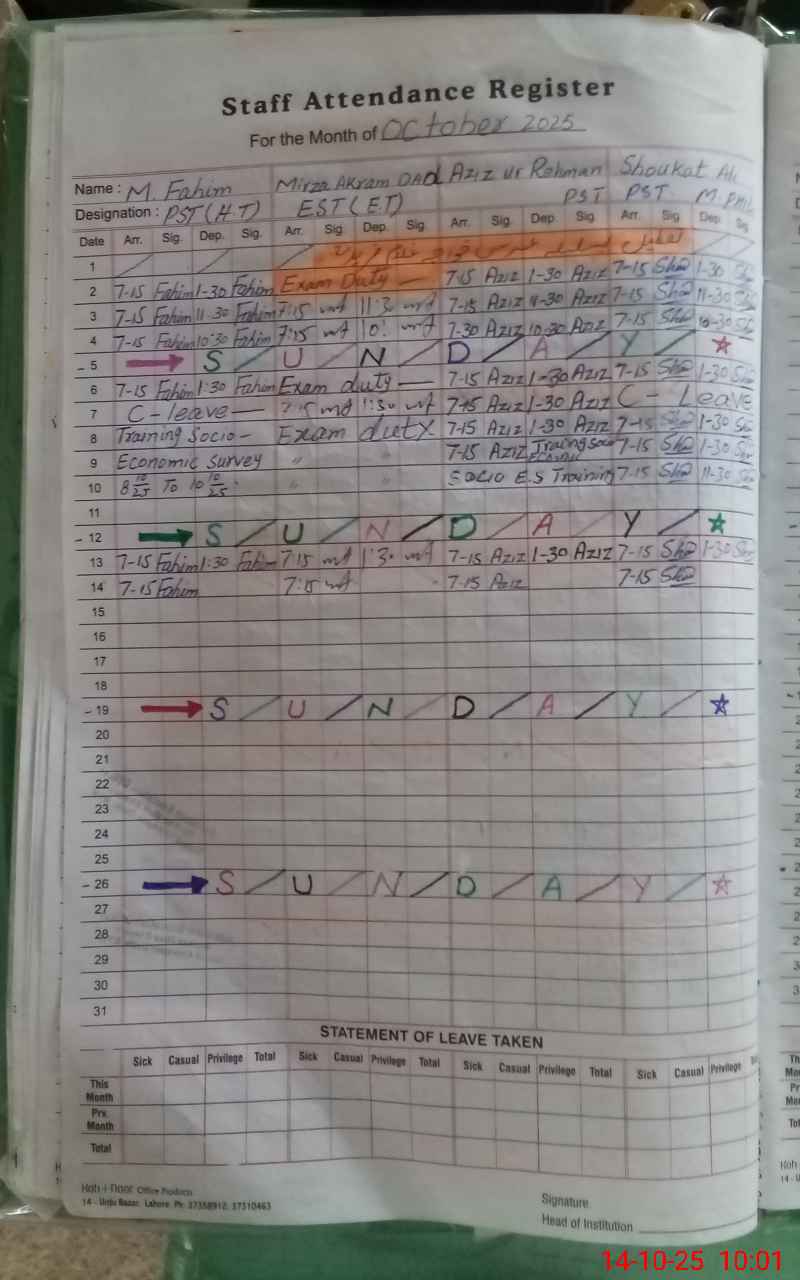 Staff Attendance Register
For the Month of October 2025
Name : M. Fahim Mirza Akram DAd Aziz ur Rehman Shoukat Ali
Designation : PST (H.T) EST (E.T) PST PST M.Phil
Date Arr. Sig. Dep. Sig. Arr. Sig. Dep. Sig. Arr. Sig. Dep. Sig. Arr. Sig. Dep. Sig.
1
2 7-15 Fahim 1-30 Fahim Exam Duty — 7-15 Aziz 1-30 Aziz 7-15 1-30
3 7-15 Fahim 11-30 Fahim 7:15 11:30 7-15 Aziz 11-30 Aziz 7-15 11-30
4 7-15 Fahim 10:30 Fahim 7:15 10: 7-30 Aziz 10-30 Aziz 7-15 10-30
- 5 S / U / N / D / A / Y /
6 7-15 Fahim 1:30 Fahim Exam duty — 7-15 Aziz 1-30 Aziz 7-15 1-30
7 C-leave — 7:15 1:30 7-15 Aziz 1-30 Aziz C- Leave
8 Training Socio - Exam duty 7-15 Aziz 1-30 Aziz 7-15 1-30
9 Economic Survey " " 7-15 Aziz Traning Socio 7-15 1-30
10 8 10/25 To 10 10/25 " " SOCIO E.S Training 7-15 11-30
11
- 12 S / U / N / D / A / Y /
13 7-15 Fahim 1:30 Fahim 7:15 1:30 7-15 Aziz 1-30 Aziz 7-15 1-30
14 7-15 Fahim 7:15 7-15 Aziz 7-15
15
16
17
18
- 19 S / U / N / D / A / Y /
20
21
22
23
24
25
- 26 S / U / N / D / A / Y /
27
28
29
30
31
STATEMENT OF LEAVE TAKEN
Sick Casual Privilege Total Sick Casual Privilege Total Sick Casual Privilege Total Sick Casual Privilege
This Month
Prv. Month
Total
Koh-i-Noor Office Products
14 - Urdu Bazar, Lahore. Ph: 37358912, 37310463
Signature
Head of Institution
14-10-25 10:01